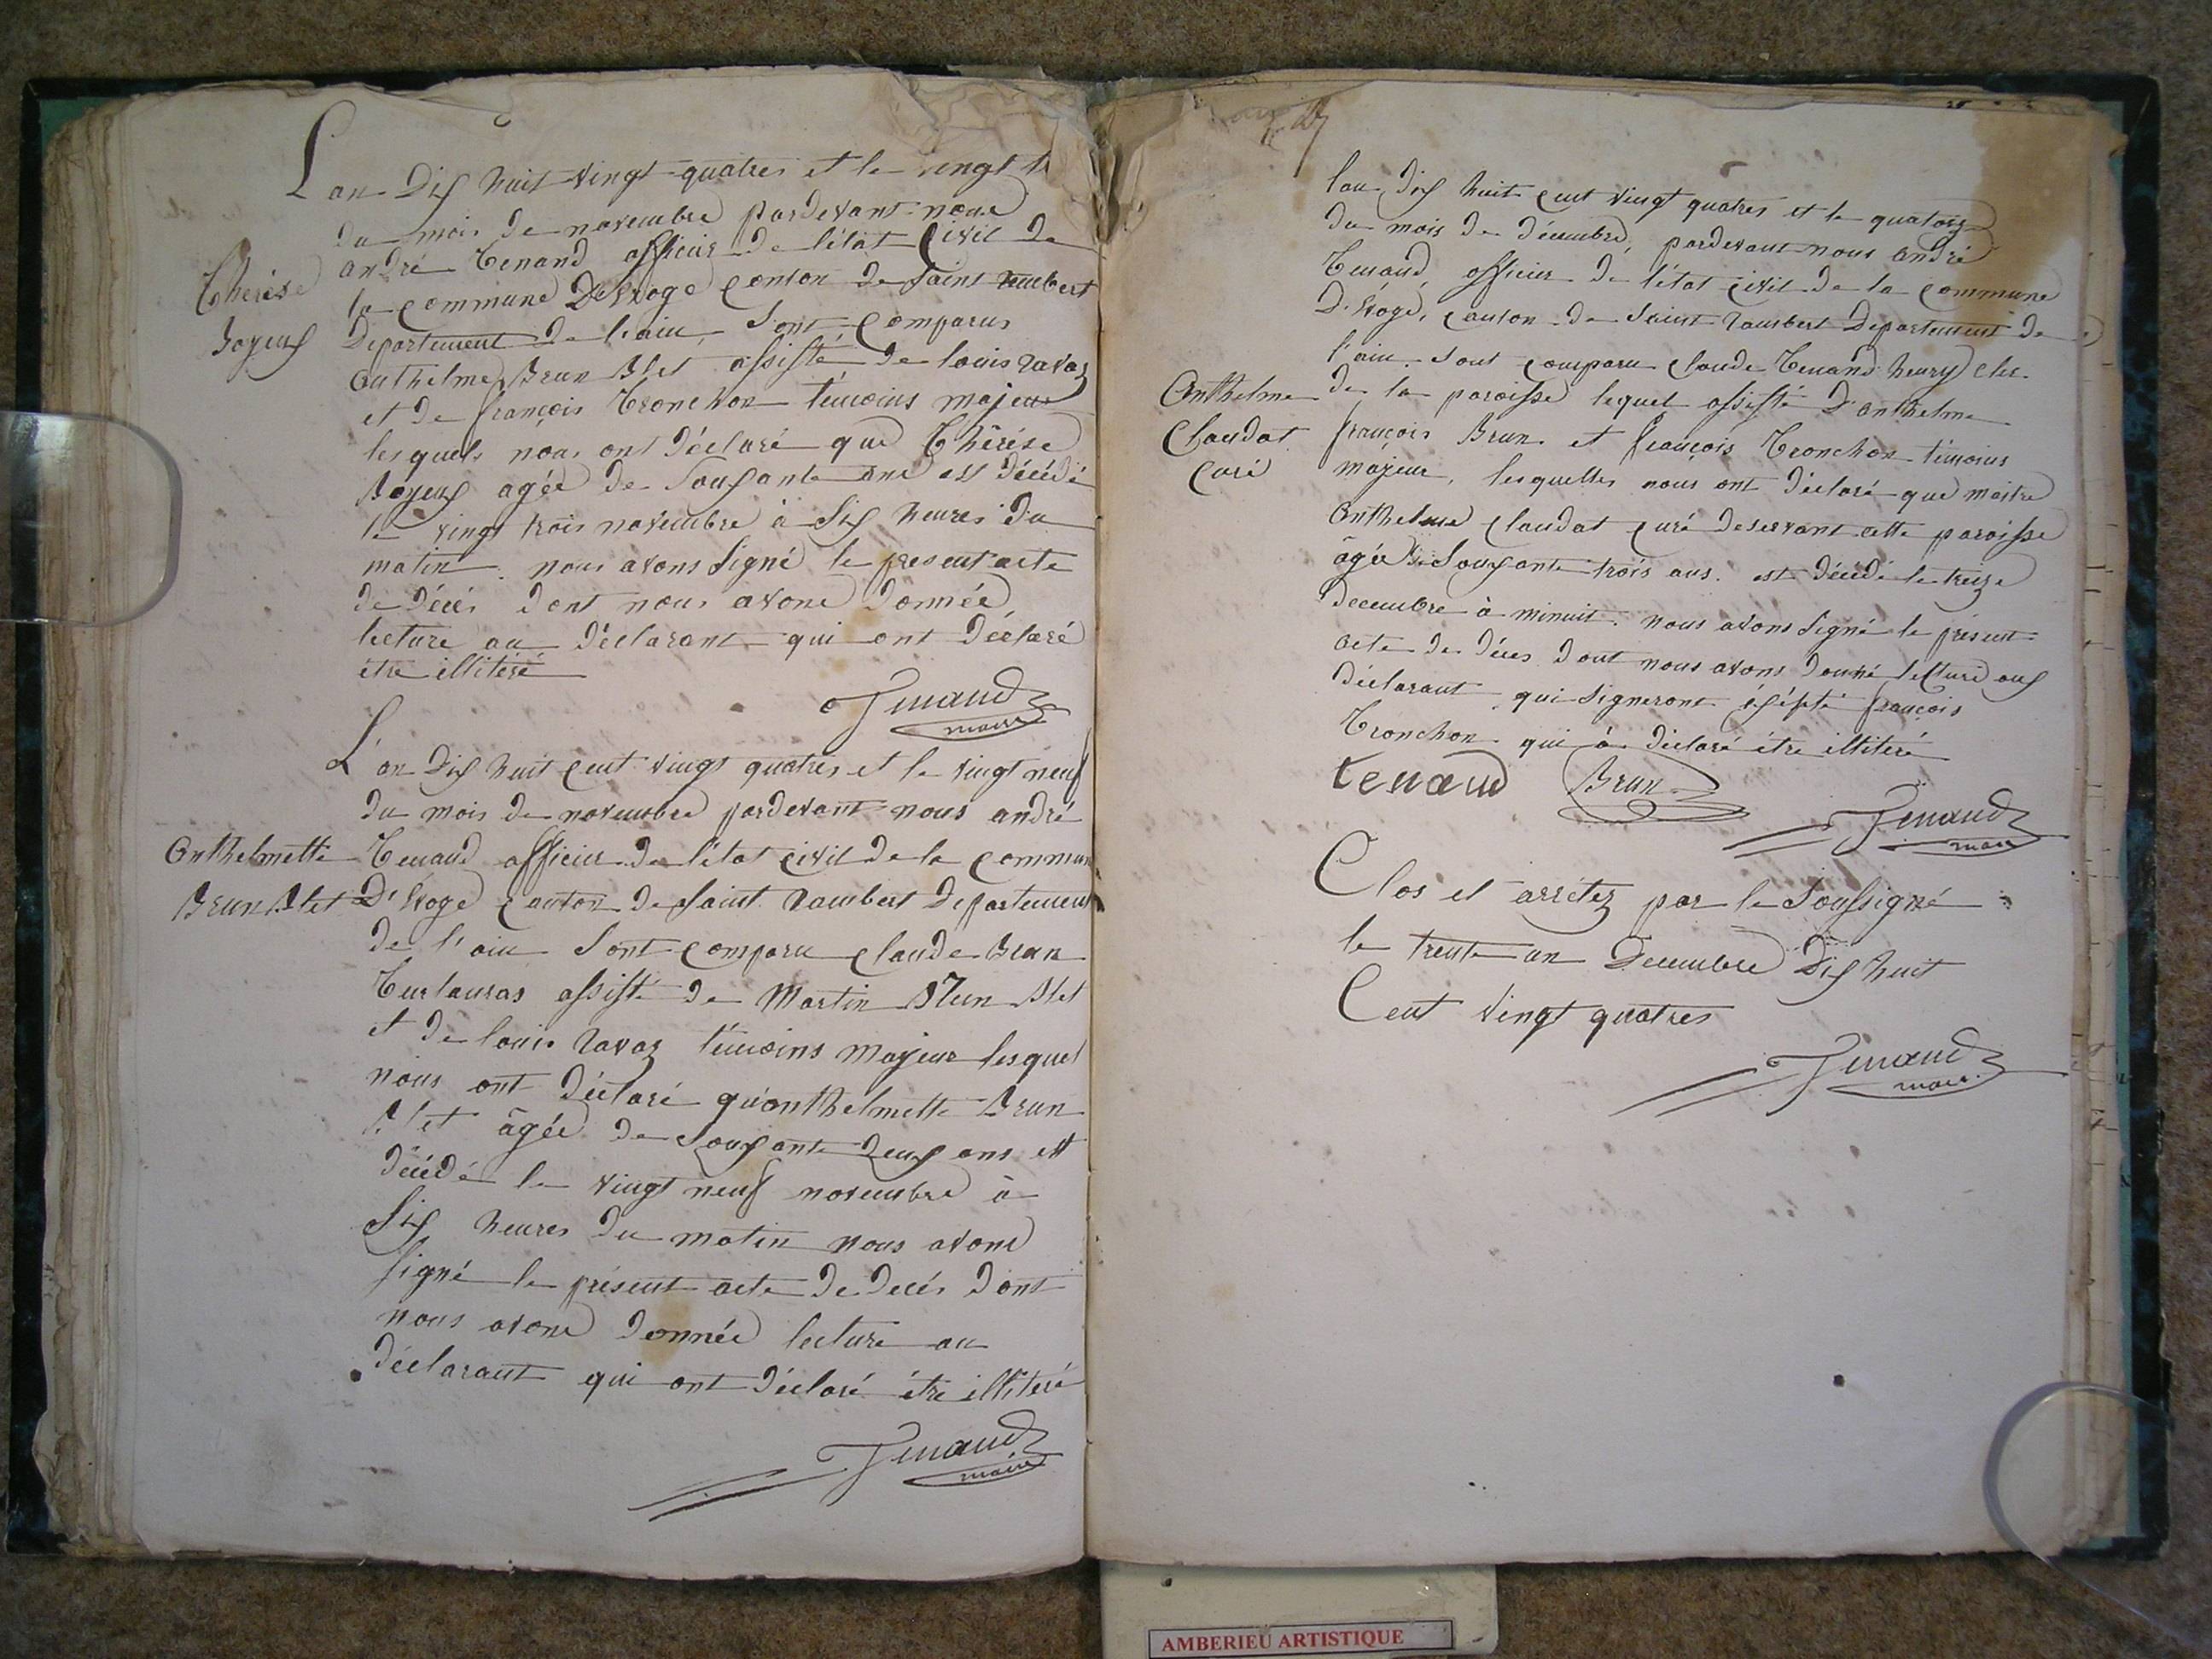 L'an Dix huit vingt quatres et le vingt
du mois de novembre pardevant nous
andré Tenand officier de l'état Civil de
la Commune D'Evoge Canton de Saint Rambert
Thérèse
Departement de l'ain, Sont Comparus
Royeux
Anthelme Brun Blet assisté de louis ravaz
et de françois Tronchon témoins majeur
lesquels nous ont Déclaré que Thérèse
Royeux agée de Soixante ans est Décédé
le vingt trois novembre à Six heures du
matin. nous avons Signé le present acte
de Décés dont nous avons Donnée
lecture au Déclarant qui ont Déclaré
etre illitéré
Tenand
maire
L'an Dix huit Cent vingt quatres et le vingt neuf
du mois de novembre pardevant nous andré
Anthelmette
Tenand officier de l'état Civil de la Commune
Brun Blet
D'Evoge Canton de Saint Rambert Departement
de l'ain Sont Comparu Claude Brun
Turlauras assisté de Martin Brun Blet
et de louis Ravaz témoins Majeur lesquel
nous ont Déclaré qu'onthelmette Brun
Blet âgée de Soixante deux ans est
Décédé le vingt neuf novembre à
Six heures du matin nous avons
signé le présent acte de Decés Dont
nous avons Donnée lecture au
Déclarant qui ont Déclaré étre illitéré
Tenand
maire
l'an Dix huit Cent vingt quatres et le quatorze
du mois de décembre, pardevant nous André
Tenand, officier de l'état civil de la Commune
D'Evoge, Canton de Saint Rambert Departement de
l'ain. Sont Comparu Claude Tenand henry Clec.
Anthelme
Claudat
Curé
de la paroisse lequel assisté D'anthelme
françois Brun et françois Tronchon témoins
majeur, lesquelles nous ont Déclaré que maitre
Anthelme Claudat Curé deservant cette paroisse
âgée de Soixante trois ans. est décédé le treize
Decembre à minuit. nous avons Signé le présent
acte de Déces Dont nous avons Donné lecture aux
Déclarant qui Signeront éxépté françois
Tronchon qui à déclaré étre illitéré
tenand Brun Tenand
maire
Clos et arrétez par le Soussigné
le trente un Decembre Dix huit
Cent vingt quatres
Tenand
maire
AMBERIEU ARTISTIQUE